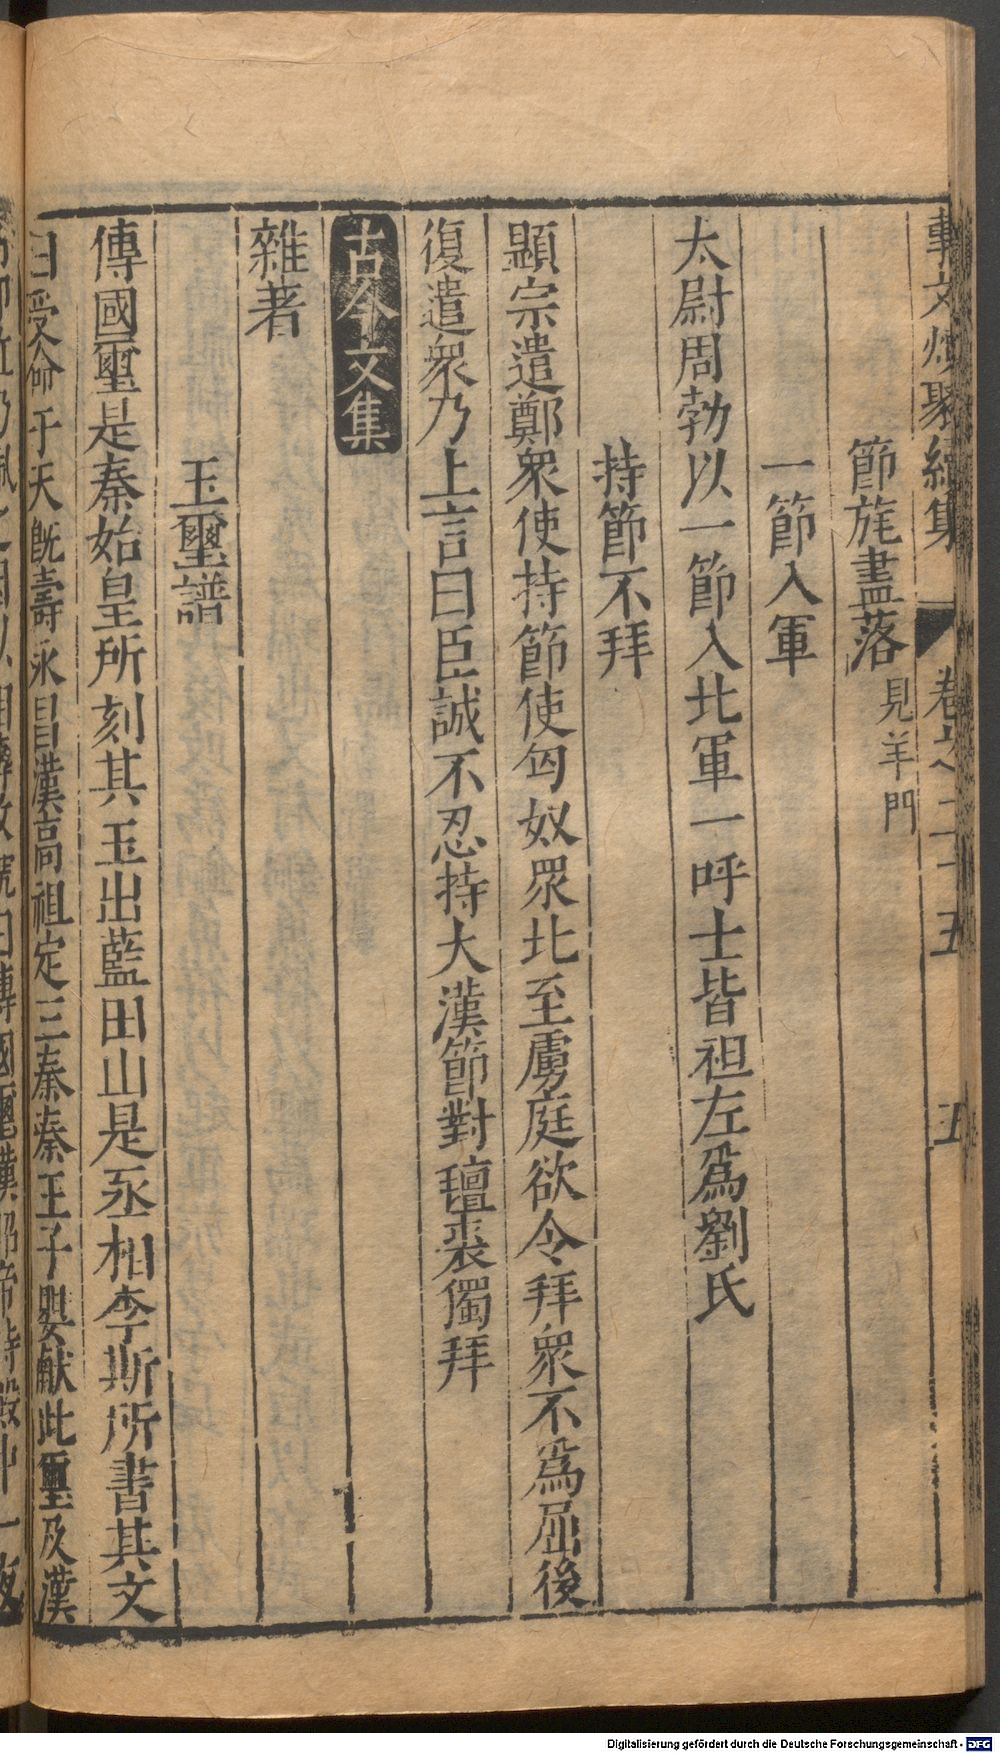 事文類聚續集 卷之二十五 五
節旄盡落 見羊門
一節入軍
太尉周勃以一節入北軍一呼士皆袒左爲劉氏
持節不拜
顯宗遣鄭衆使持節使匈奴眾北至虜庭欲令拜衆不爲屈後
復遣衆乃上言曰臣誠不忍持大漢節對氊裘獨拜
古今文集
雜著
玉璽譜
傳國璽是秦始皇所刻其玉出藍田山是丞相李斯所書其文
曰受命于天旣壽永昌漢高祖定三秦秦王子嬰献此璽及漢
Digitalisierung gefördert durch die Deutsche Forschungsgemeinschaft - DFG